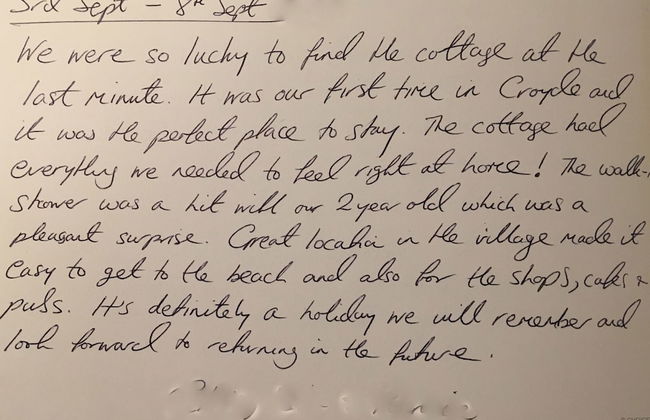 3rd Sept - 8th Sept
We were so lucky to find the cottage at the
last minute. It was our first time in Croyde and
it was the perfect place to stay. The cottage had
everything we needed to feel right at home! The walk-
shower was a hit with our 2 year old which was a
pleasant surprise. Great location in the village made it
easy to get to the beach and also for the shops, cafes &
pubs. It's definitely a holiday we will remember and
look forward to returning in the future.